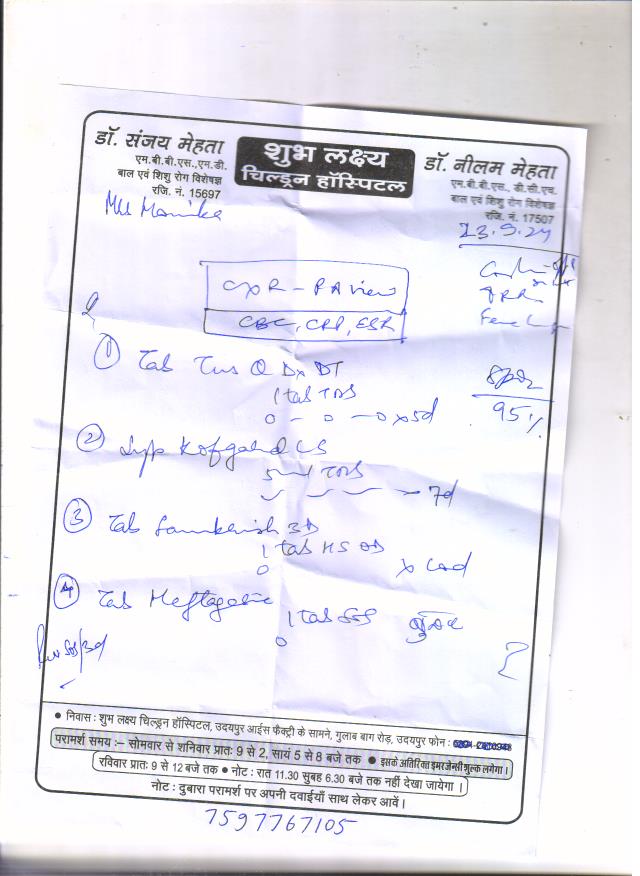 डॉ. संजय मेहता
एम.बी.बी.एस.,एम.डी.
बाल एवं शिशु रोग विशेषज्ञ
रजि. नं. 15697
शुभ लक्ष्य
चिल्ड्रन हॉस्पिटल
डॉ. नीलम मेहता
एम.बी.बी.एस., डी.सी.एच.
बाल एवं शिशु रोग विशेषज्ञ
रजि. नं. 17507
Monika
23.9.24
CXR - PA View
CBC, CRP, ESR
① Tab Tus Q Dx DT
1 tab TDS
0 - 0 - 0 x 5d
SPO2
95 %
② Syp Kofgard LS
5 ml TDS
7d
③ Tab 3D
1 tab HS OD
0
④ Tab
1 tab SOS
0
● निवास : शुभ लक्ष्य चिल्ड्रन हॉस्पिटल, उदयपुर आईस फैक्ट्री के सामने, गुलाब बाग रोड, उदयपुर फोन :
परामर्श समय :– सोमवार से शनिवार प्रातः 9 से 2, सायं 5 से 8 बजे तक ● इसके अतिरिक्त इमरजेन्सी शुल्क लगेगा ।
रविवार प्रातः 9 से 12 बजे तक ● नोट : रात 11.30 सुबह 6.30 बजे तक नहीं देखा जायेगा ।
नोट : दुबारा परामर्श पर अपनी दवाईयाँ साथ लेकर आवें ।
7597767105